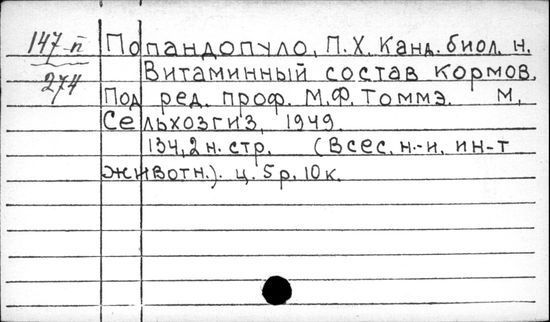 147-п
274
Попандопуло, П.Х. Канд. биол. н.
Витаминный состав кормов.
Под ред. проф. М.Ф. Томмэ. М,
Сельхозгиз, 1949.
134,2 н. стр. (Всес. н.-и. ин-т
животн.). ц. 5 р. 10 к.